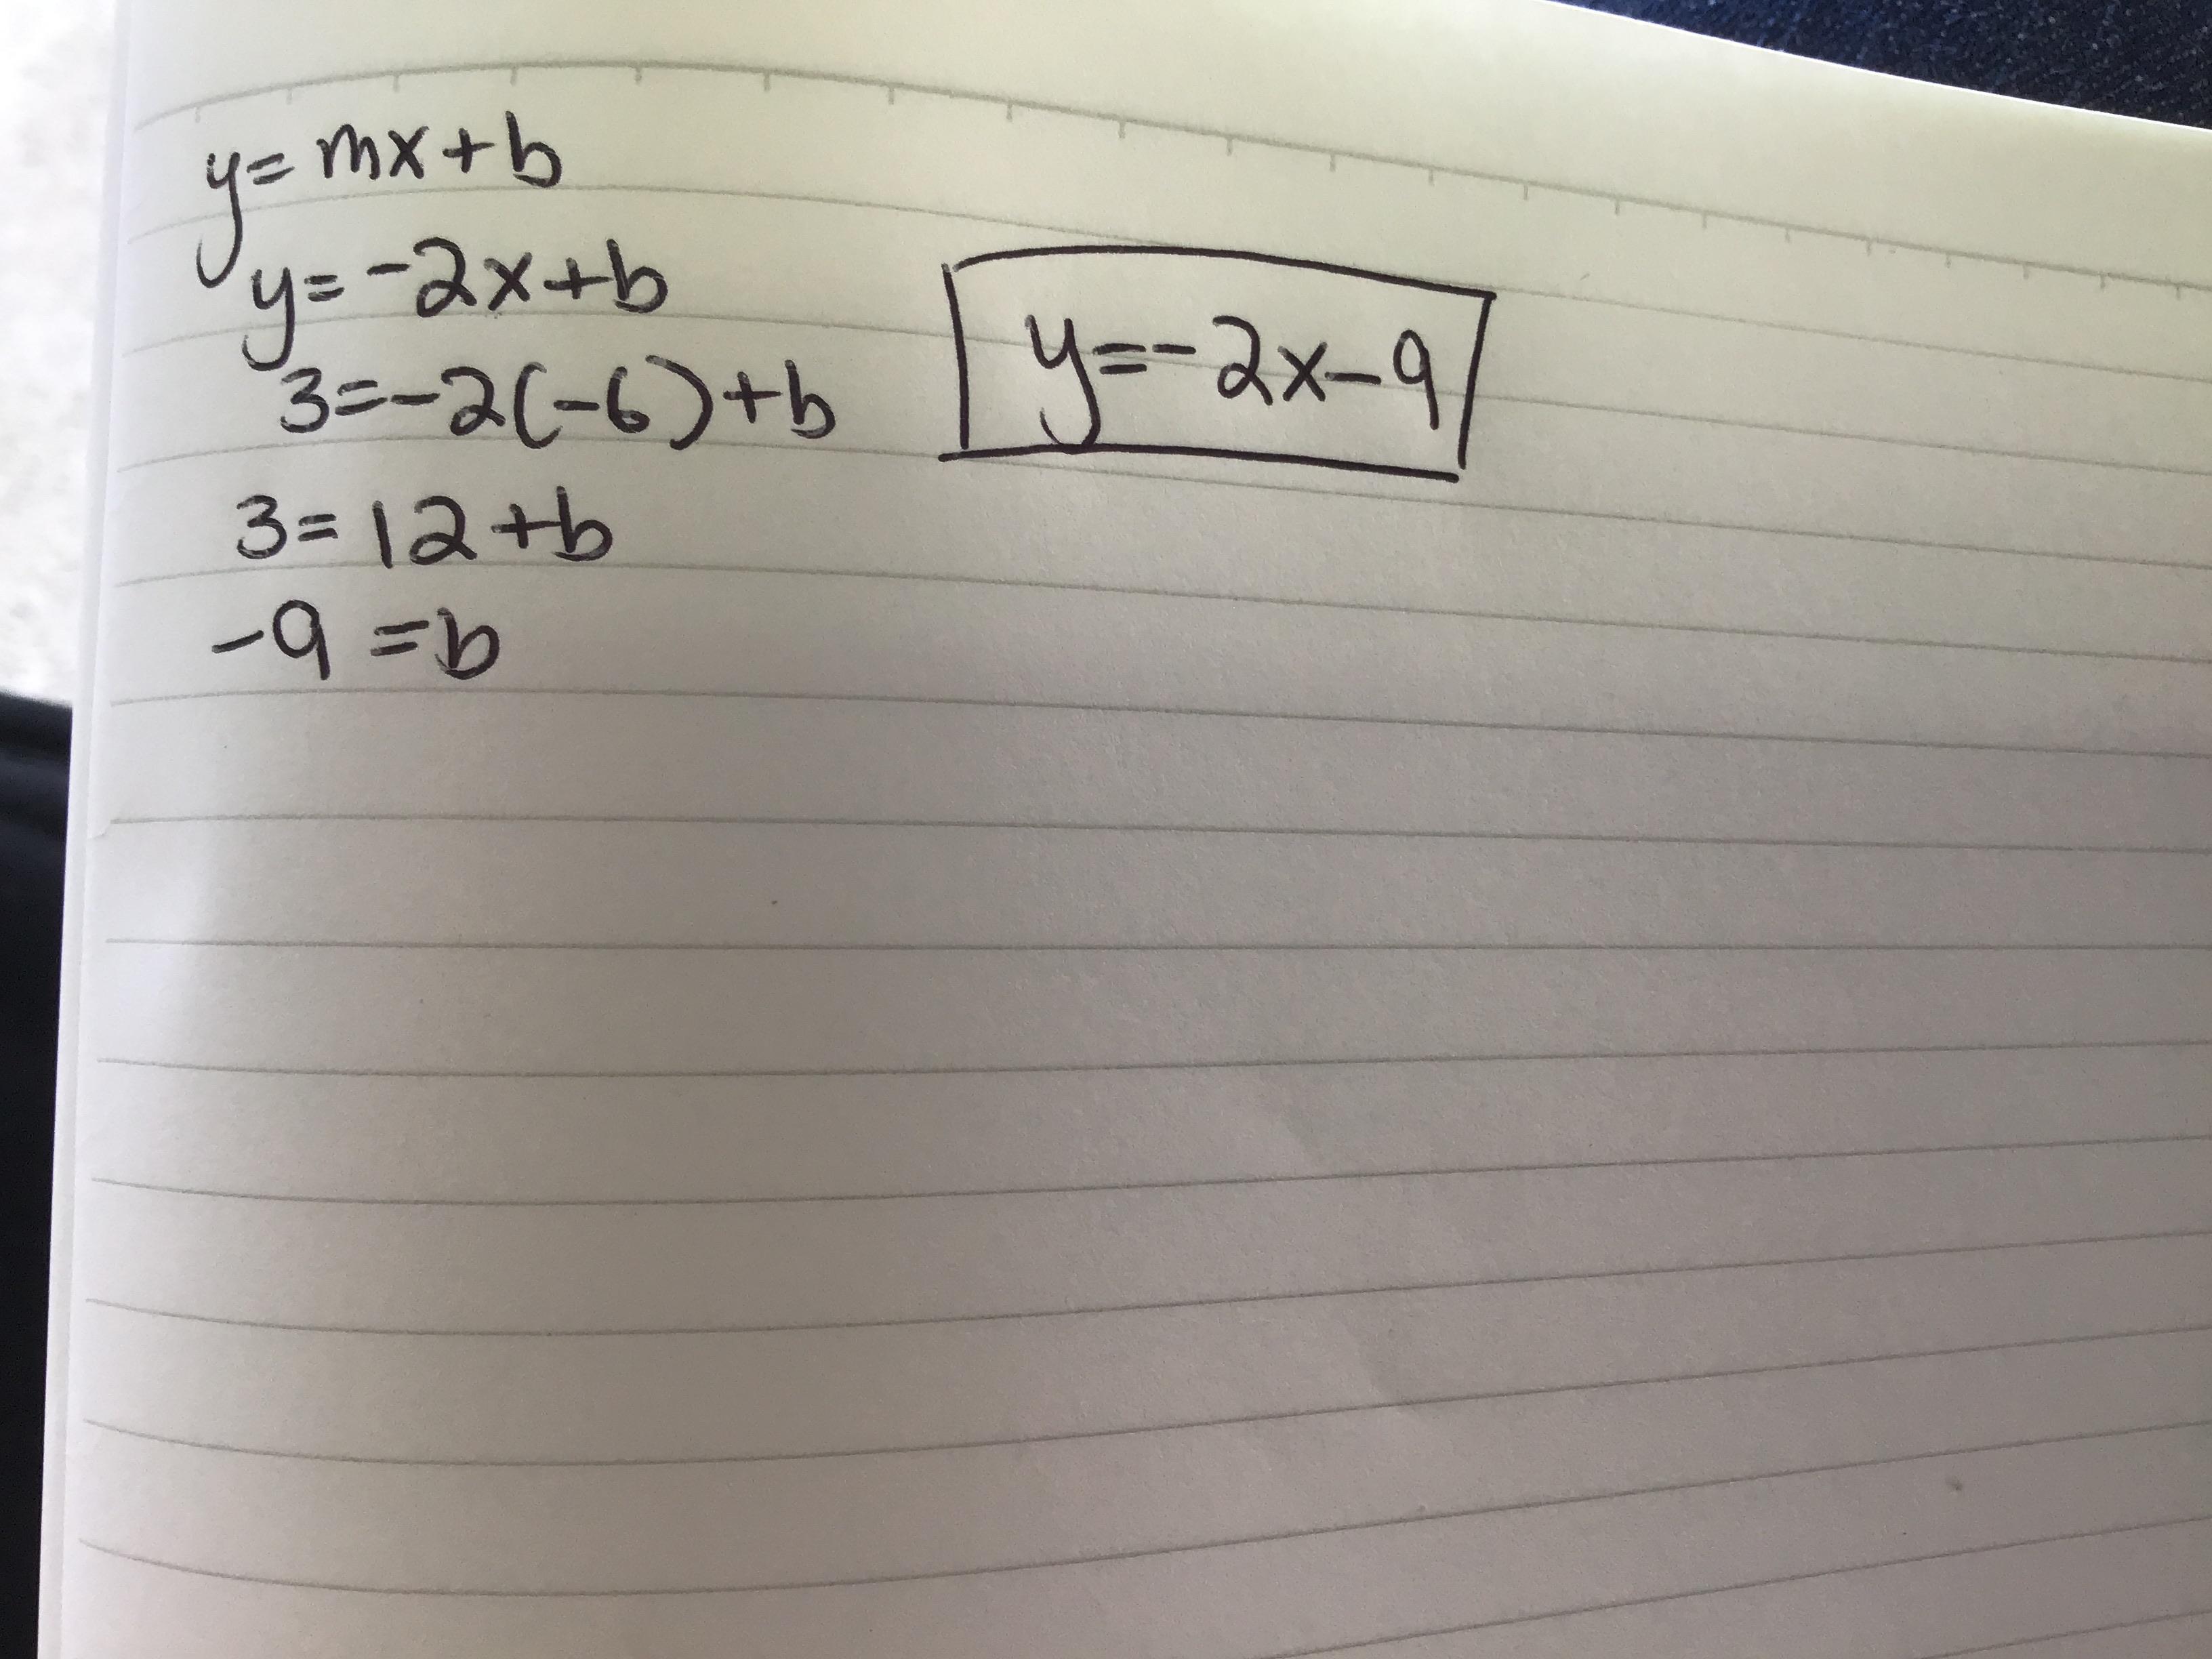 y=mx+b
y=-2x+b
3=-2(-6)+b
3=12+b
-9=b
y=-2x-9